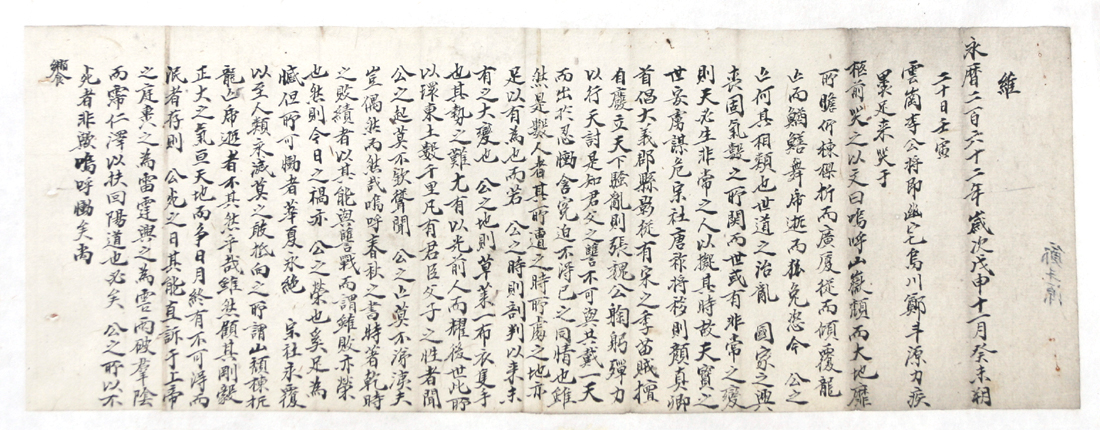 維
永曆二百六十二年歲次戊申十一月癸未朔
二十日壬寅
雲崗李公將卽幽宅烏川鄭斗源力疾
累足来哭于
柩前哭之以文曰嗚呼山嶽頹而大地靡
所瞻仰棟樑折而廣廈從而傾覆龍
亡而鰌鱔舞虎逝而狐兔恣今 公之
亡何其相類也世道之治亂 國家之興
喪固氣數之所関而世或有非常之變
則天必生非常之人以擬其時故天寶之
世安虜謀危宗社唐祚將移則顔真卿
首倡大義郡縣影從有宋之季苗賊擅
有慶立天下騷亂則張魏公鞠躬殫力
以行天討是知君父之讐不可與共戴一天
而出於忍慟含寃迫不淂已之同情也雖
然是數人者其所遭之時所處之地亦
足以有為也而若 公之時則剖判以来未
有之大變也 公之地則草萊一布衣隻手
也其勢之難尤有以光前人而耀後世此所
以環東土數千里凡有君臣父子之性者聞
公之起莫不歎聳聞 公之亡莫不淂淚夫
豈偶然而然哉嗚呼春秋之書特著乾時
之敗績者以其能與讐戰而謂雖敗亦榮
也然則今日之禍亦 公之榮也奚足為
慽但所可慟者華夏永絶 宗社永覆
以至人類永滅莫之敢抵向之所謂山頹棟折
龍亡虎逝者不其然乎哉雖然顧其剛毅
正大之氣亘天地而爭日月終有不可淂而
泯者存則 公死之日其能直訴于上帝
之庭乗之為雷霆興之為雲雨破羣陰
而霈仁澤以扶回陽道也必矣 公之所以不
死者非歟嗚呼慟矣尚
饗